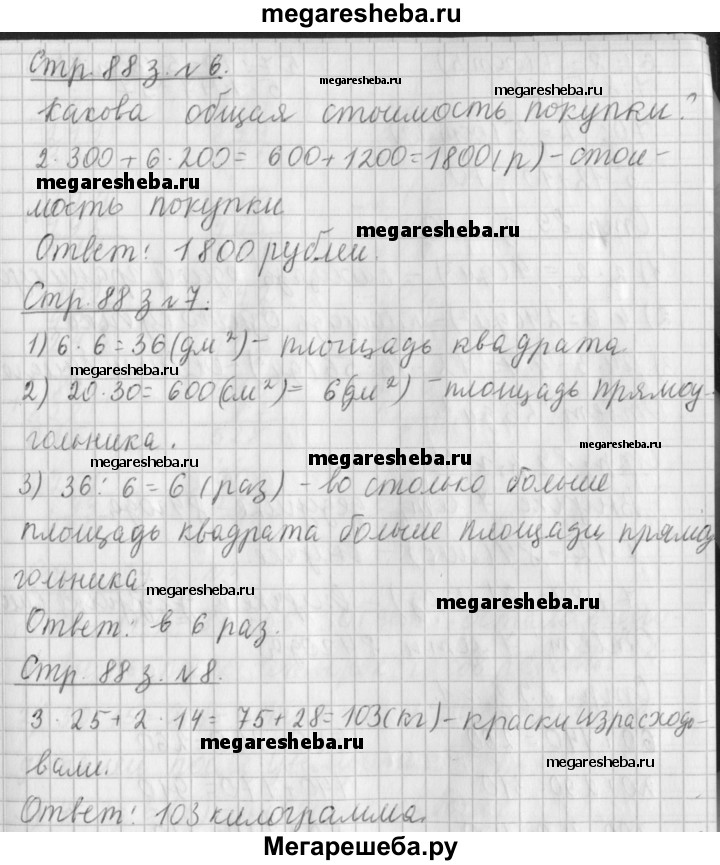 megaresheba.ru
Стр. 88 з. №6.
megaresheba.ru
Какова общая стоимость покупки?
2·300+6·200= 600+1200=1800(р)-стои-
megaresheba.ru
мость покупки
megaresheba.ru
Ответ: 1800 рублей.
Стр. 88 з №7.
1) 6·6=36(дм²)- площадь квадрата
megaresheba.ru
2) 20·30=600(см²)= 6(дм²) -площадь прямоу-
гольника.
megaresheba.ru
megaresheba.ru
megaresheba.ru
3) 36:6=6 (раз) -во столько больше
площадь квадрата больше площади прямоу
гольника
megaresheba.ru
megaresheba.ru
Ответ: в 6 раз.
Стр. 88 з. №8.
megaresheba.ru
3·25+2·14= 75+28=103(кг)-краски израсходо-
megaresheba.ru
megaresheba.ru
вали.
Ответ: 103 килограмма.
Мегарешеба.ру